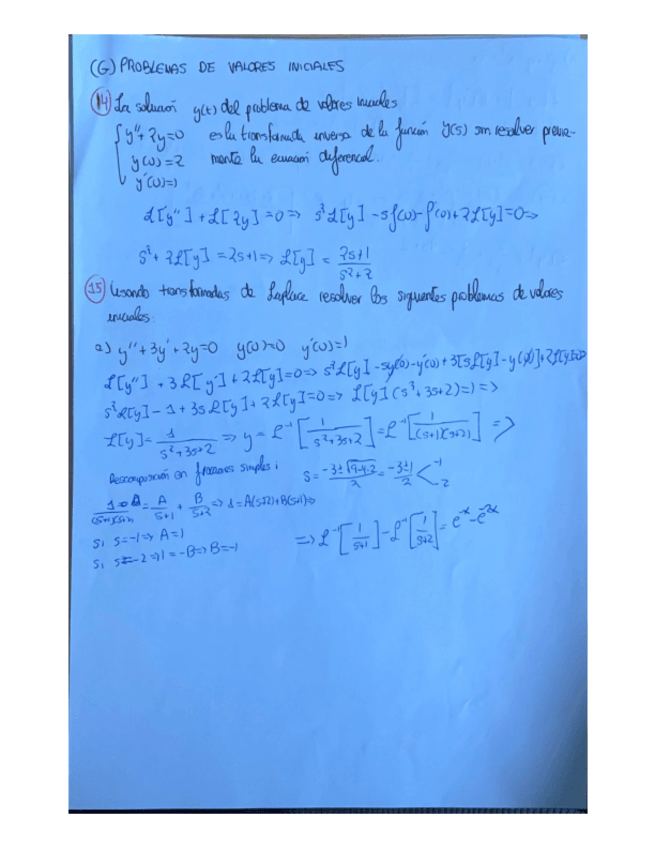 (G) PROBLEMAS DE VALORES INICIALES
14) La solución y(t) del problema de valores iniciales
y''+2y=0 es la transformada inversa de la función Y(s) sin resolver previa-
y(0)=2 mente la ecuación diferencial.
y'(0)=1
L[y'']+L[2y]=0=> s²L[y]-sf(0)-f'(0)+2L[y]=0=>
s²+2L[y]=2s+1=> L[y]= (2s+1)/(s²+2)
15) Usando transformadas de Laplace resolver los siguientes problemas de valores
iniciales
a) y''+3y'+2y=0 y(0)=0 y'(0)=1
L[y'']+3L[y']+2L[y]=0=> s²L[y]-sy(0)-y'(0)+3[sL[y]-y(0)]+2L[y]=0=>
s²L[y]-1+3sL[y]+2L[y]=0=> L[y](s²+3s+2)=1=>
L[y]= 1/(s²+3s+2) => y=L⁻¹[1/(s²+3s+2)]=L⁻¹[1/((s+1)(s+2))] =>
Descomposición en fracciones simples: s= (-3±√9-4·2)/2 = (-3±1)/2 < -1 -2
1/((s+1)(s+2)) = A/(s+1) + B/(s+2) => 1=A(s+2)+B(s+1)=>
Si s=-1=> A=1 => L⁻¹[1/(s+1)]-L⁻¹[1/(s+2)]= e^-x - e^-2x
Si s=-2=>1=-B=> B=-1